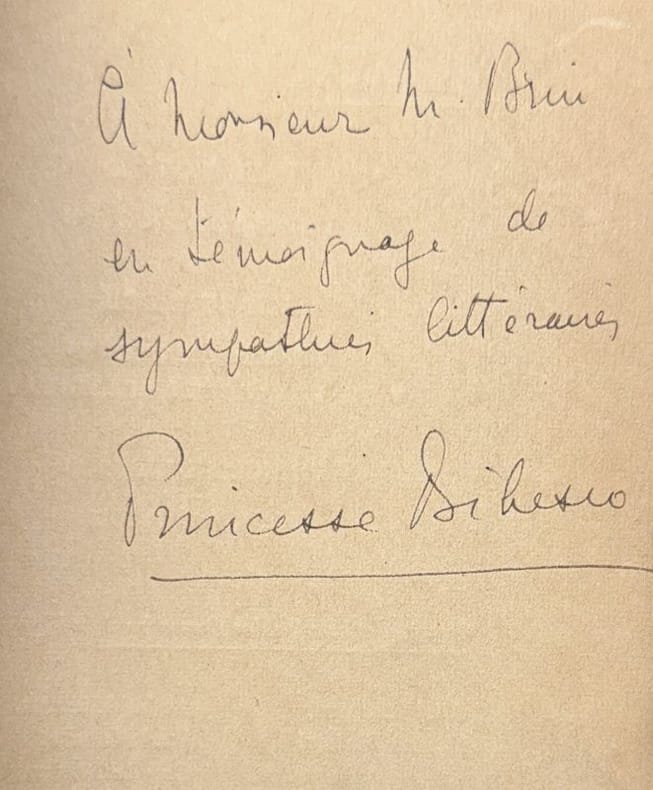 À Monsieur M. Brin
en témoignage de
sympathies littéraires
Princesse Bibesco